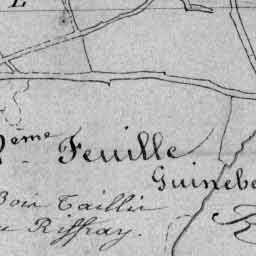 L
2ème Feuille
Guinebe
Bois Taillis
du Riffray.
R